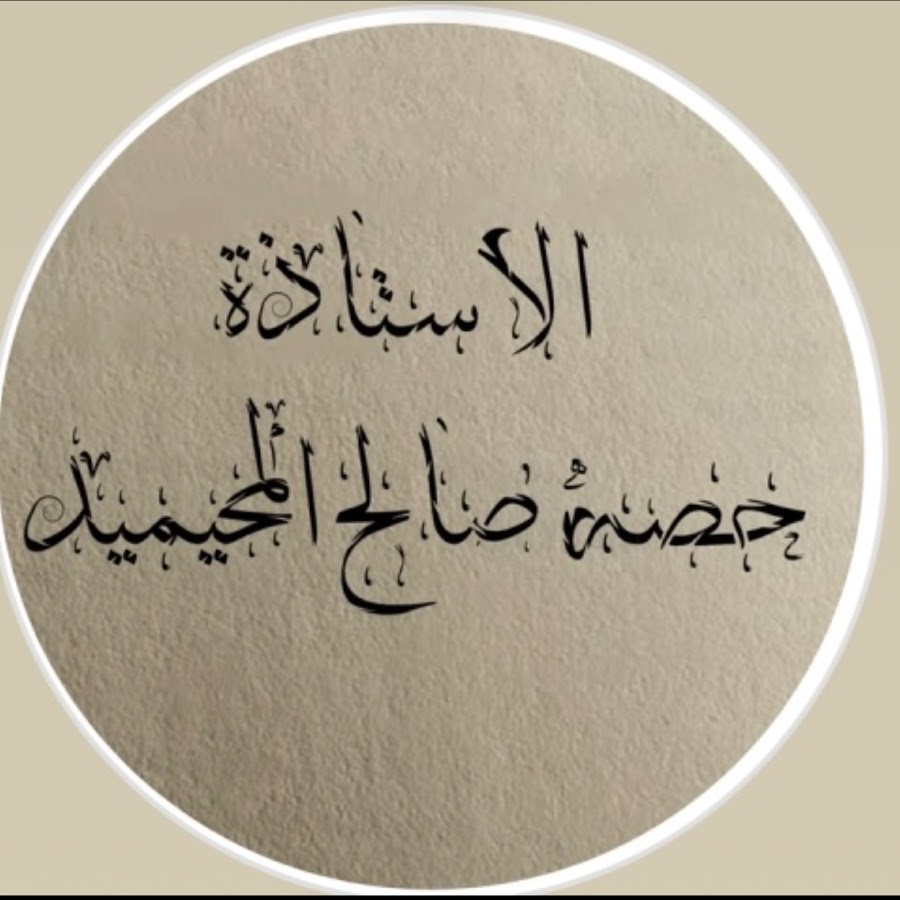 الاستاذة
حصه صالح المحيميد